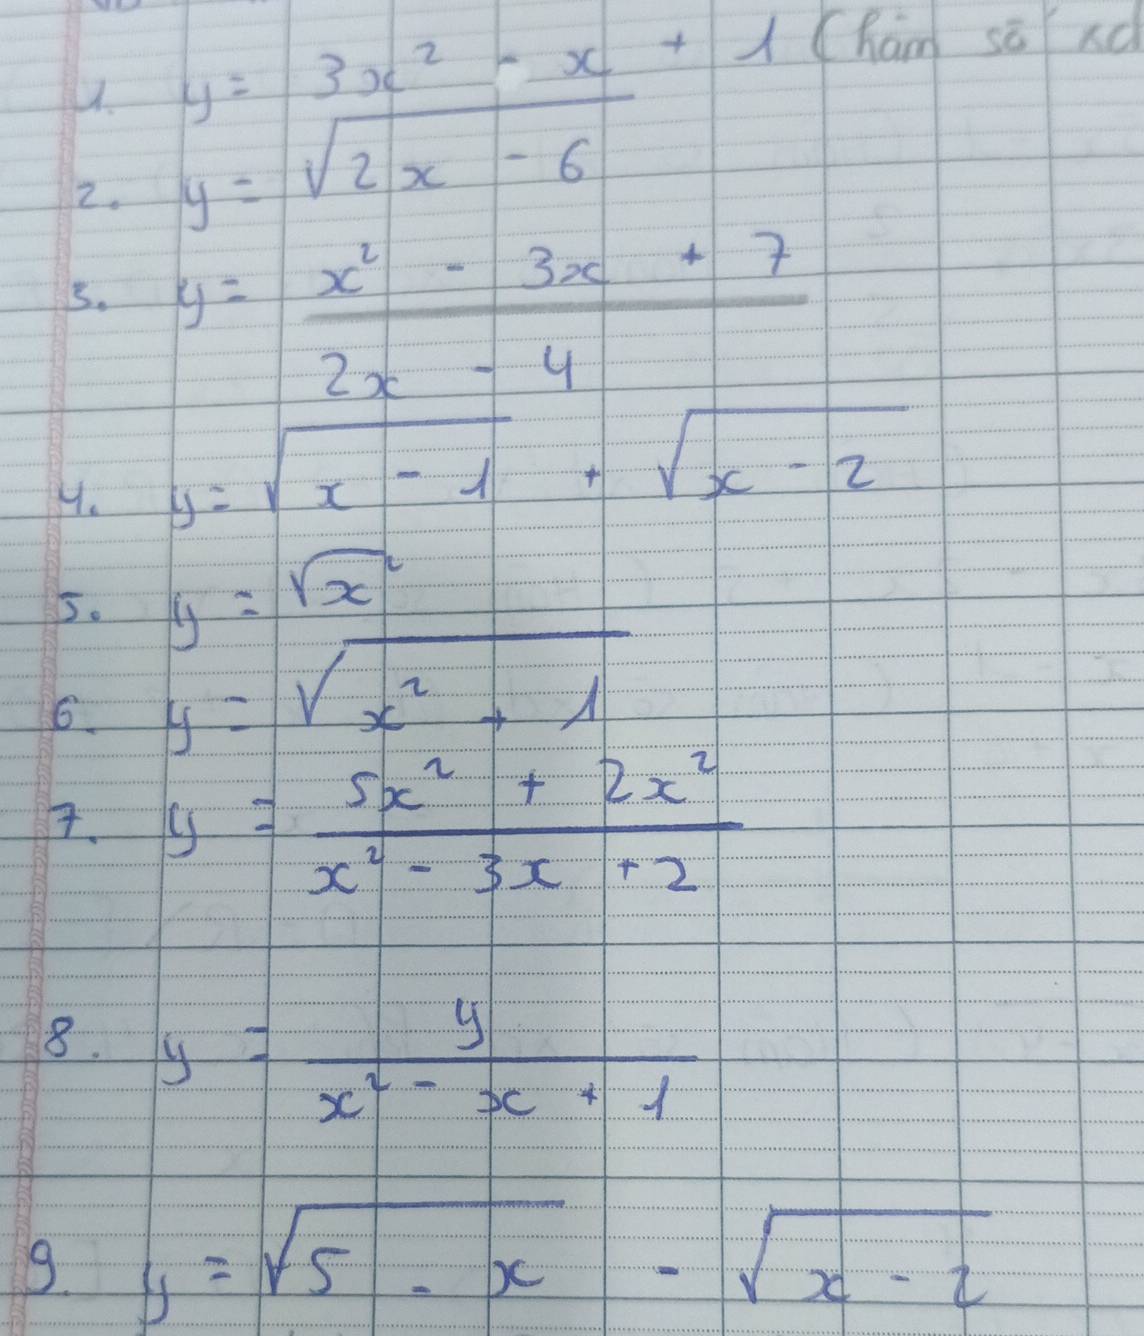 1. y = 3x² - x + 1 (hàm số xđ
2. y = √(2x - 6)
3. y = x² - 3x + 7
2x - 4
4. y = √(x - 1) + √(x - 2)
5. y = √x²
6. y = √(x² + 1)
7. y = 5x² + 2x²
x² - 3x + 2
8. y = y
x² - x + 1
9. y = √(5 - x) - √(x - 2)